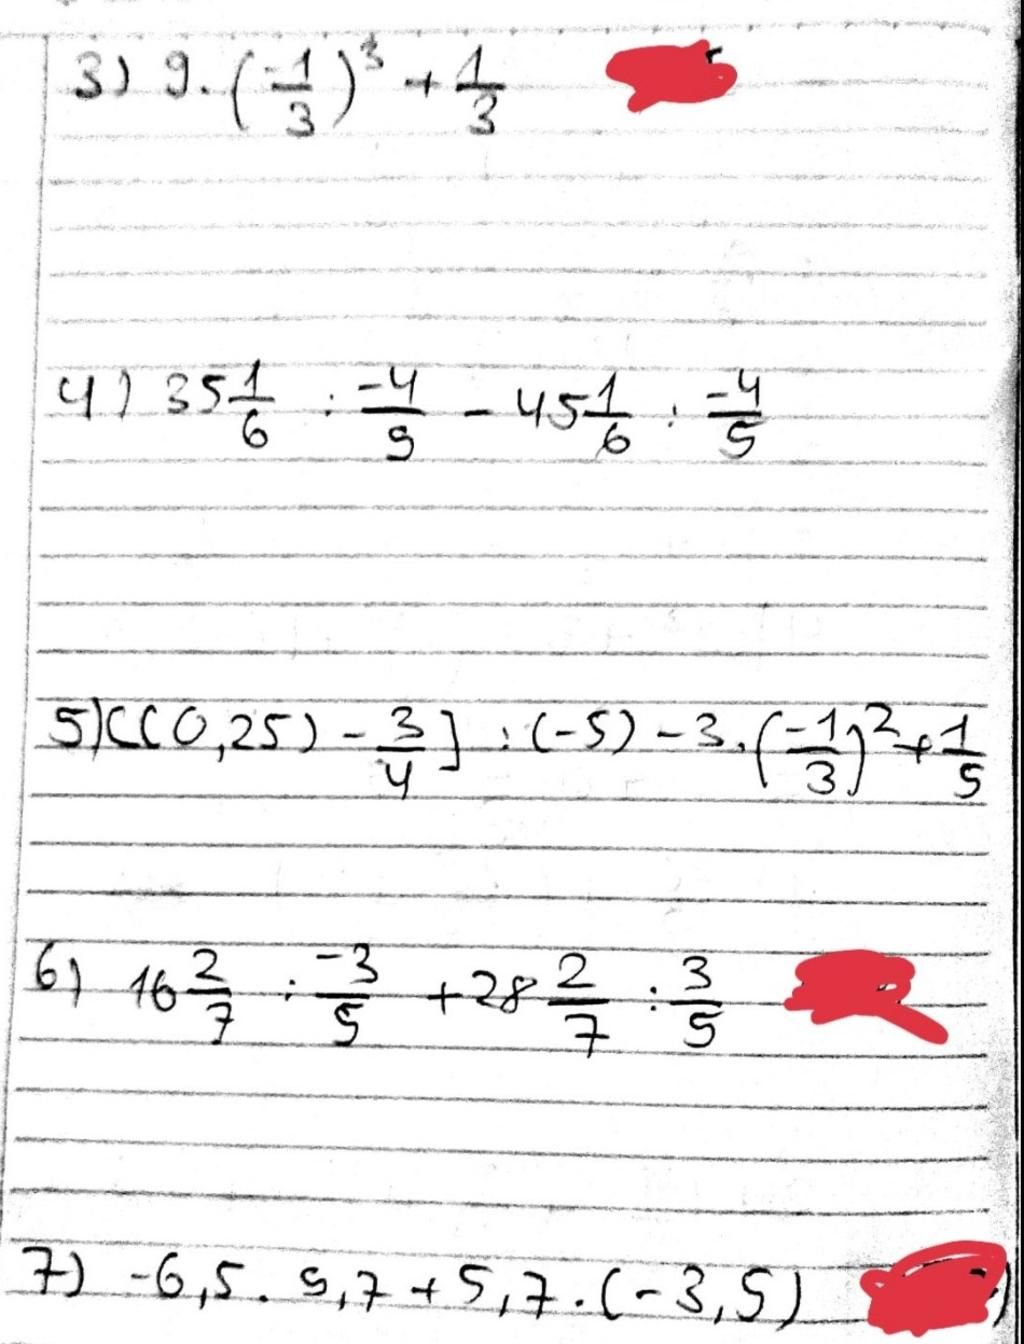 3) 9.(-1/3)³ + 1/3
4) 35 1/6 : -4/9 - 45 1/6 : -4/5
5) [(0,25) - 3/4] : (-5) - 3.(-1/3)² + 1/5
6) 16 2/7 : -3/5 + 28 2/7 : 3/5
7) -6,5 . 5,7 + 5,7.(-3,5)